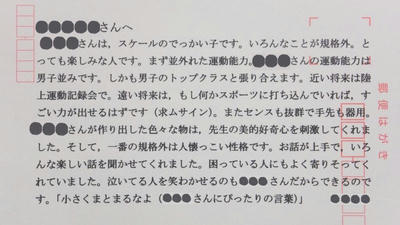 ●●●●●さんへ
●●●さんは、スケールのでっかい子です。いろんなことが規格外。と
っても楽しみな人です。まず並外れた運動能力。●●●さんの運動能力は
男子並みです。しかも男子のトップクラスと張り合えます。近い将来は陸
上運動記録会で。遠い将来は、もし何かスポーツに打ち込んでいれば、す
ごい力が出せるはずです（求ムサイン）。またセンスも抜群で手先も器用。
●●●さんが作り出した色々な物は、先生の美的好奇心を刺激してくれま
した。そして、一番の規格外は人懐っこい性格です。お話が上手で、いろ
んな楽しい話を聞かせてくれました。困っている人にもよく寄りそってく
れていました。泣いてる人を笑わせるのも●●●さんだからできるので
す。「小さくまとまるなよ（●●●さんにぴったりの言葉）」　●●●●
郵便はがき